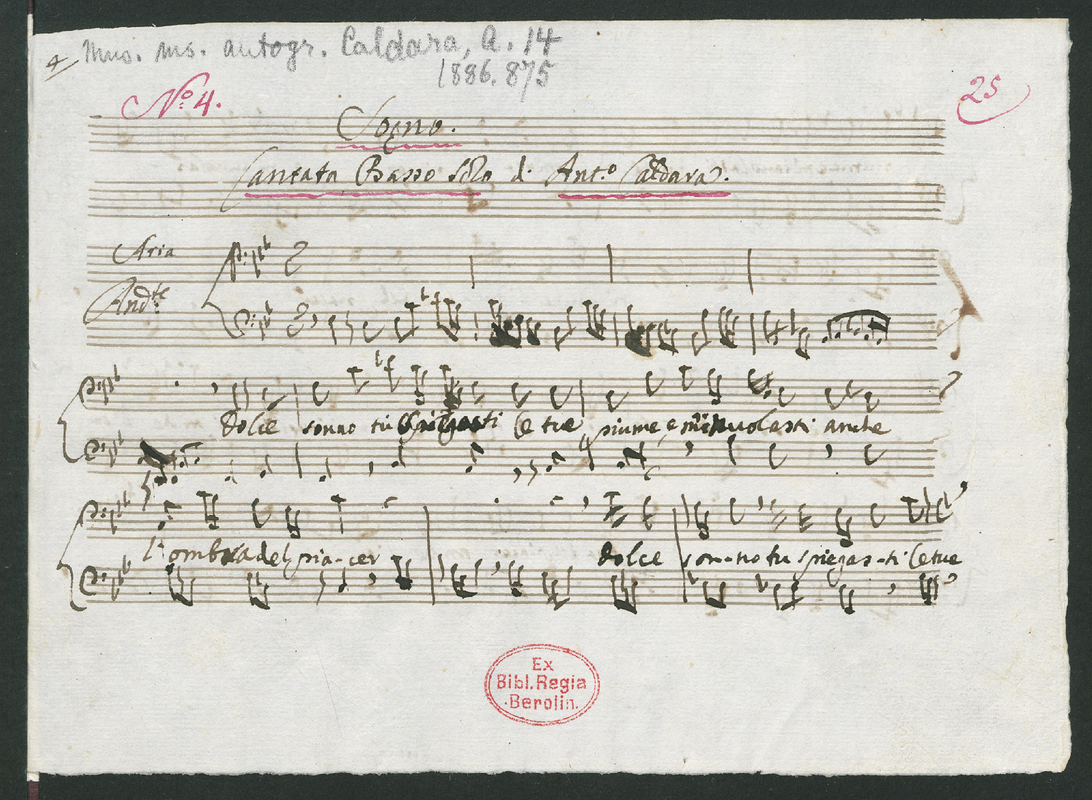 4 Mus. ms. autogr. Caldara, A. 14
1886.875
No. 4.
25
Sogno.
Cantata Basso Solo d. Ant.o Caldara.
Aria
And.te
dolce sonno tu spiegasti le tue piume e m'involasti anche
l'ombra del pia-cer dolce son-no tu spiegas-ti le tue
Ex
Bibl. Regia
Berolin.